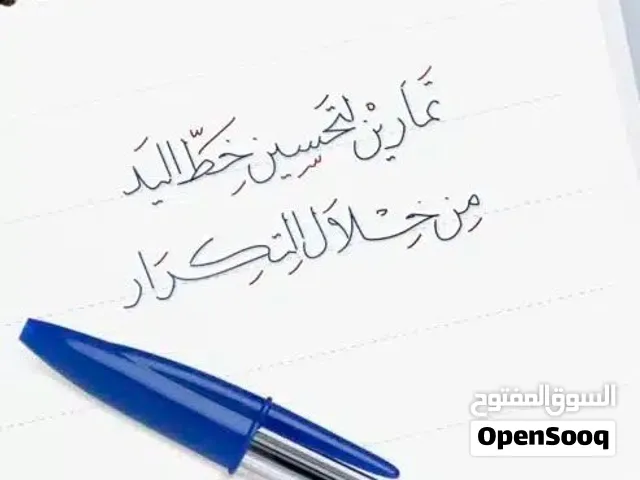 تَمَارِيْن لتَحسِين خَطّ اليَد
مِن خِلاَل التِكرَار
السوق المفتوح
OpenSooq